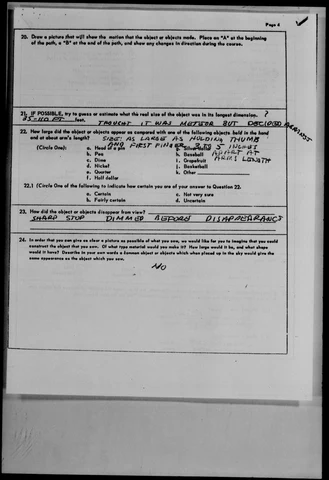 Page 4
20. Draw a picture that will show the motion that the object or objects made. Place an "A" at the beginning
of the path, a "B" at the end of the path, and show any changes in direction during the course.
21. IF POSSIBLE, try to guess or estimate what the real size of the object was in its longest dimension. ?
feet. THOUGHT IT WAS METEOR BUT DECIDED AGAINST
22. How large did the object or objects appear as compared with one of the following objects held in the hand
and at about arm's length? SIZE AS LARGE AS HOLDING THUMB
AND FIRST FINGER 5 INCHES
(Circle One): a. Head of a pin
b. Pea h. Baseball APART AT
c. Dime i. Grapefruit ARMS LENGTH
d. Nickel j. Basketball
e. Quarter k. Other
f. Half dollar
22.1 (Circle One of the following to indicate how certain you are of your answer to Question 22.
a. Certain c. Not very sure
b. Fairly certain d. Uncertain
23. How did the object or objects disappear from view?
SHARP STOP DIMMED BEFORE DISAPPEARANCE
24. In order that you can give as clear a picture as possible of what you saw, we would like for you to imagine that you could
construct the object that you saw. Of what type material would you make it? How large would it be, and what shape
would it have? Describe in your own words a common object or objects which when placed up in the sky would give the
same appearance as the object which you saw.
NO